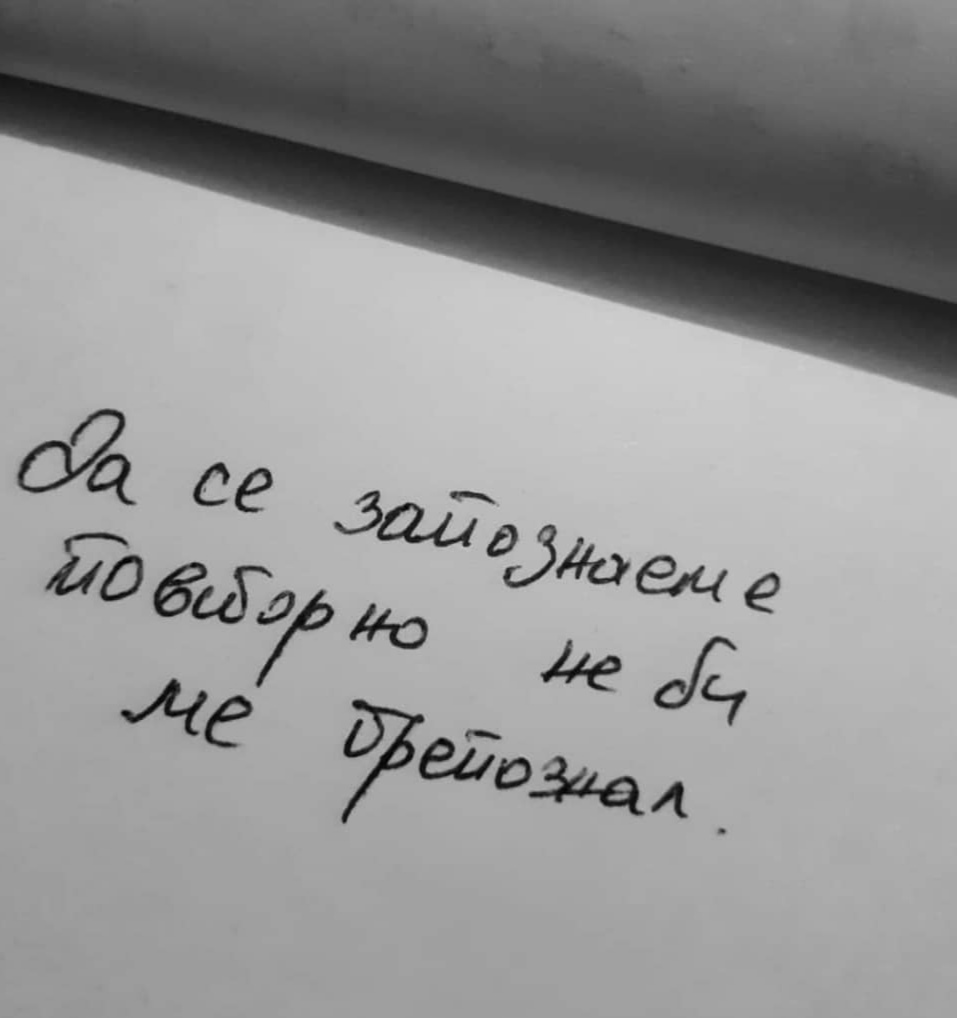 Да се запознаеме
повторно не би
ме препознал.